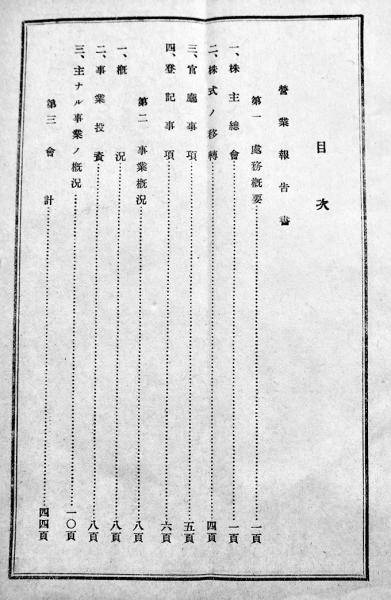 目次
營業報告書
第一 處務概要 一頁
一、株主總會 一頁
二、株式ノ移轉 四頁
三、官廳事項 五頁
四、登記事項 六頁
第二 事業概況 八頁
一、概況 八頁
二、事業投資 八頁
三、主ナル事業ノ概況 一〇頁
第三 會計 四四頁